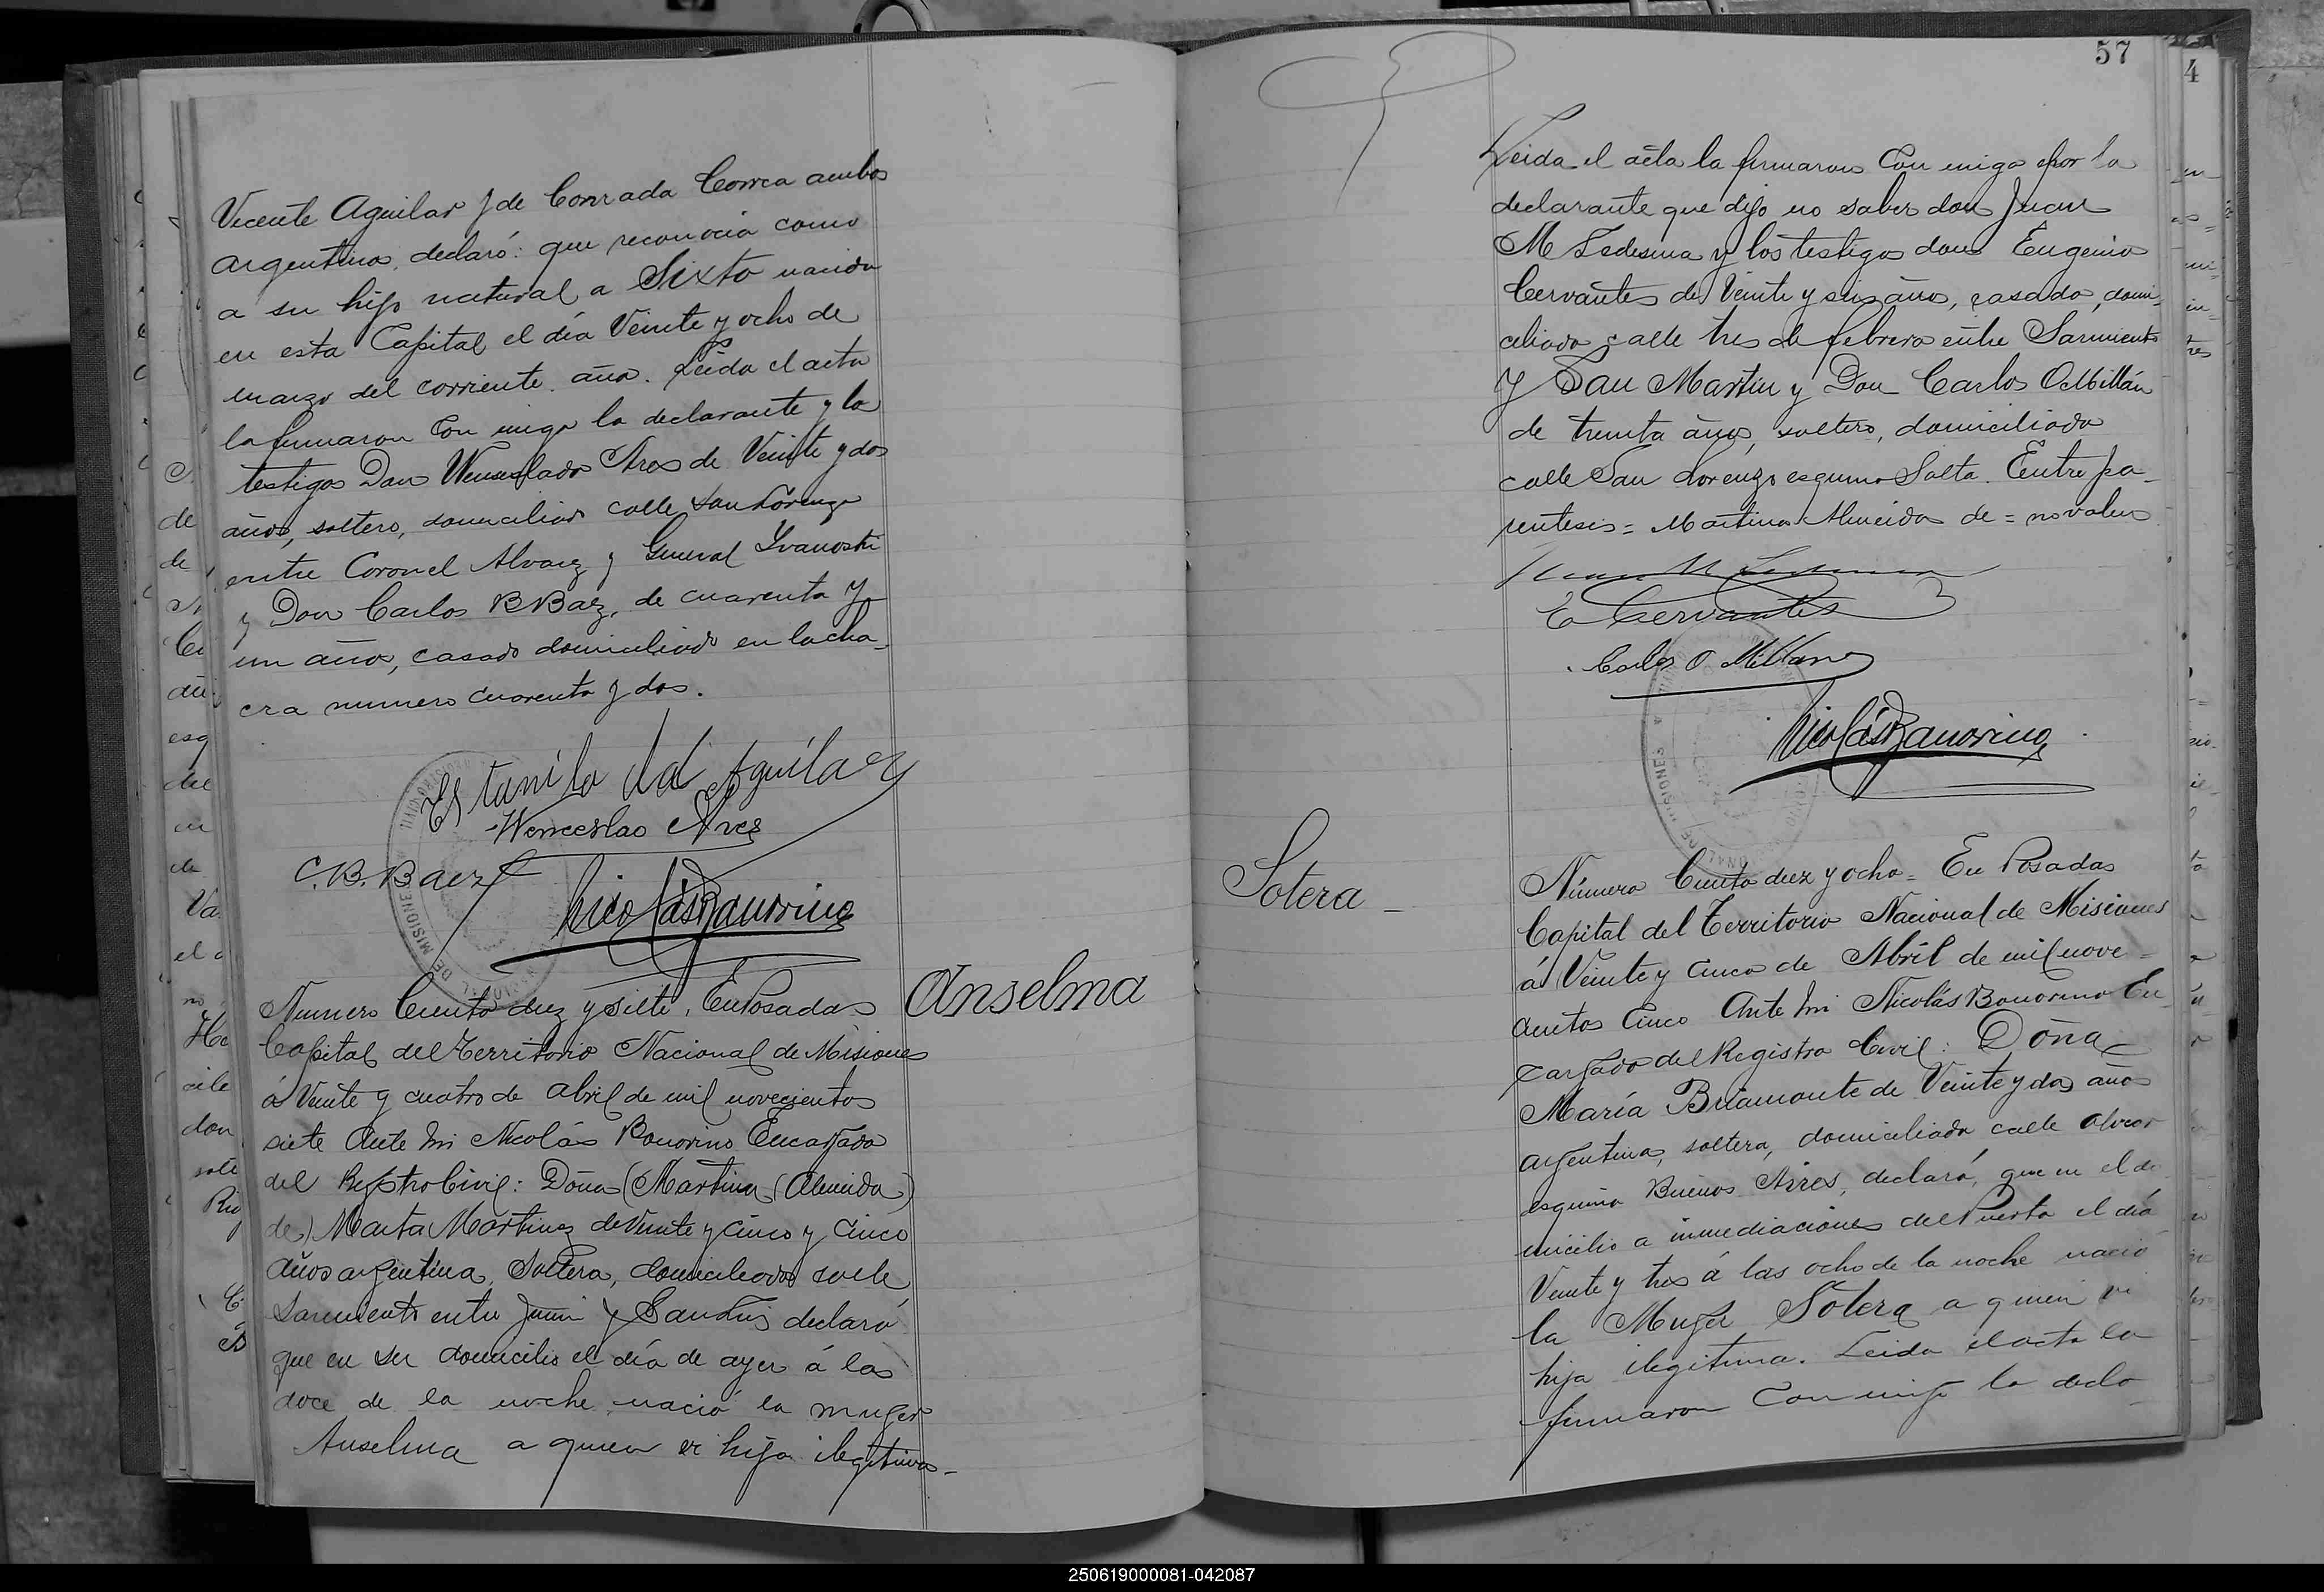 Vicente Aguilar y de Conrada Correa ambos
argentinos, declaró: que reconocia como
a su hijo natural a Sixto nacido
en esta Capital el día Veinte y ocho de
marzo del corriente año. Leida el acta
la firmaron Con migo la declarante y los
testigos Don Wenseslado Ares de Veinte y dos
años, soltero, domiciliado calle San Lorenzo
entre Coronel Alvarez y General Ivanoski
y Don Carlos B Baez, de cuarenta y
un años, casado domiciliado en la cha_
cra numero cuarenta y dos.
Estanila del Aguilar
Wenceslao Ares
C.B. Baez
Nicolás Bonorino
Numero Ciento diez y siete, En Posadas
Capital del Territorio Nacional de Misiones
á Veinte y cuatro de abril de mil novecientos
siete Ante mi Nicolás Bonorino Encargado
del Registro Civil: Doña (Martina (Almeida)
de) Marta Martinez de Veinte y cinco y Cinco
años argentina, Soltera, domiciliada calle
Sarmiento entre Junin y San Luis declaró
que en su domicilio el día de ayer á las
doce de la noche nació la muger
Anselma a quien es hija ilegitima_
Anselma
57
4
Leida el acta la firmaron Con migo por la
declarante que dijo no saber don Juan
M Ledesma y los testigos dons Eugenio
Cervantes de Veinte y seis años, casado, domi_
ciliado calle tres de febrero entre Sarmiento
y San Martin y Don Carlos O Millán
de treinta años, soltero, domiciliado
calle San Lorenzo esquina Salta. Entre pa_
rentesis = Martina Almeida de = no valen
Juan M Ledesma
E Cervantes
Carlos O Millan
Nicolás Bonorino
Sotera _
Número Ciento diez y ocho = En Posadas
Capital del Territorio Nacional de Misiones
á Veinte y cinco de Abril de mil nove_
cientos Cinco Ante mi Nicolás Bonorino En
cargado del Registro Civil: Doña
María Briamonte de Veinte y dos años
argentina, soltera, domiciliada calle
esquina Buenos Aires, declaró, que en el do
micilio a inmediaciones del Puerto el día
Veinte y tres á las ocho de la noche nació
la Muger Sotera a quien vi
hija ilegitima. Leida el acta la
firmaron Con migo la decla
250619000081-042087